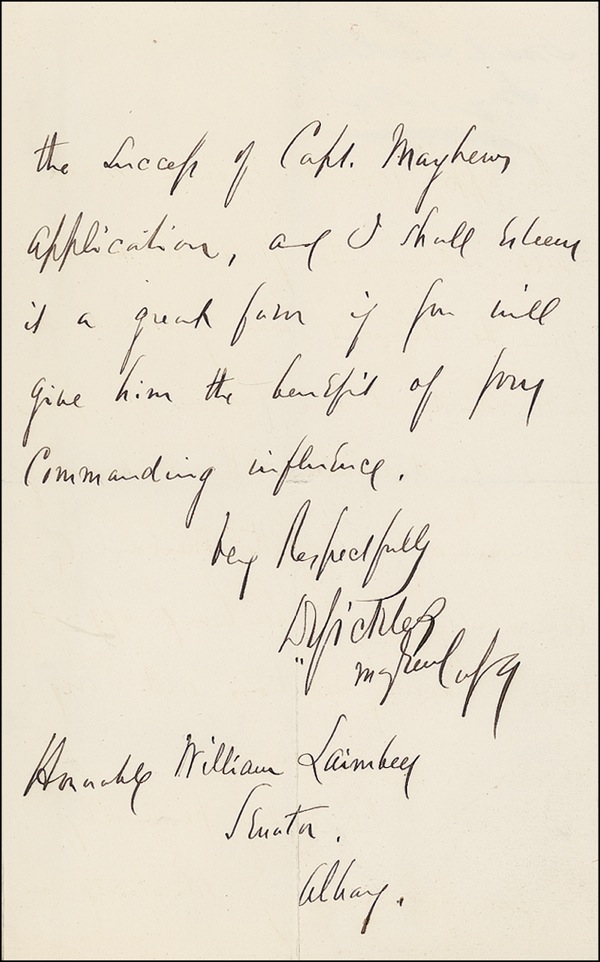 the success of Capt. Mayhews
application, and I shall esteem
it a great favor if you will
give him the benefit of your
commanding influence.
Very Respectfully
DSickles
Maj Genl
Honorable William Laimbeer
Senator.
Albany.